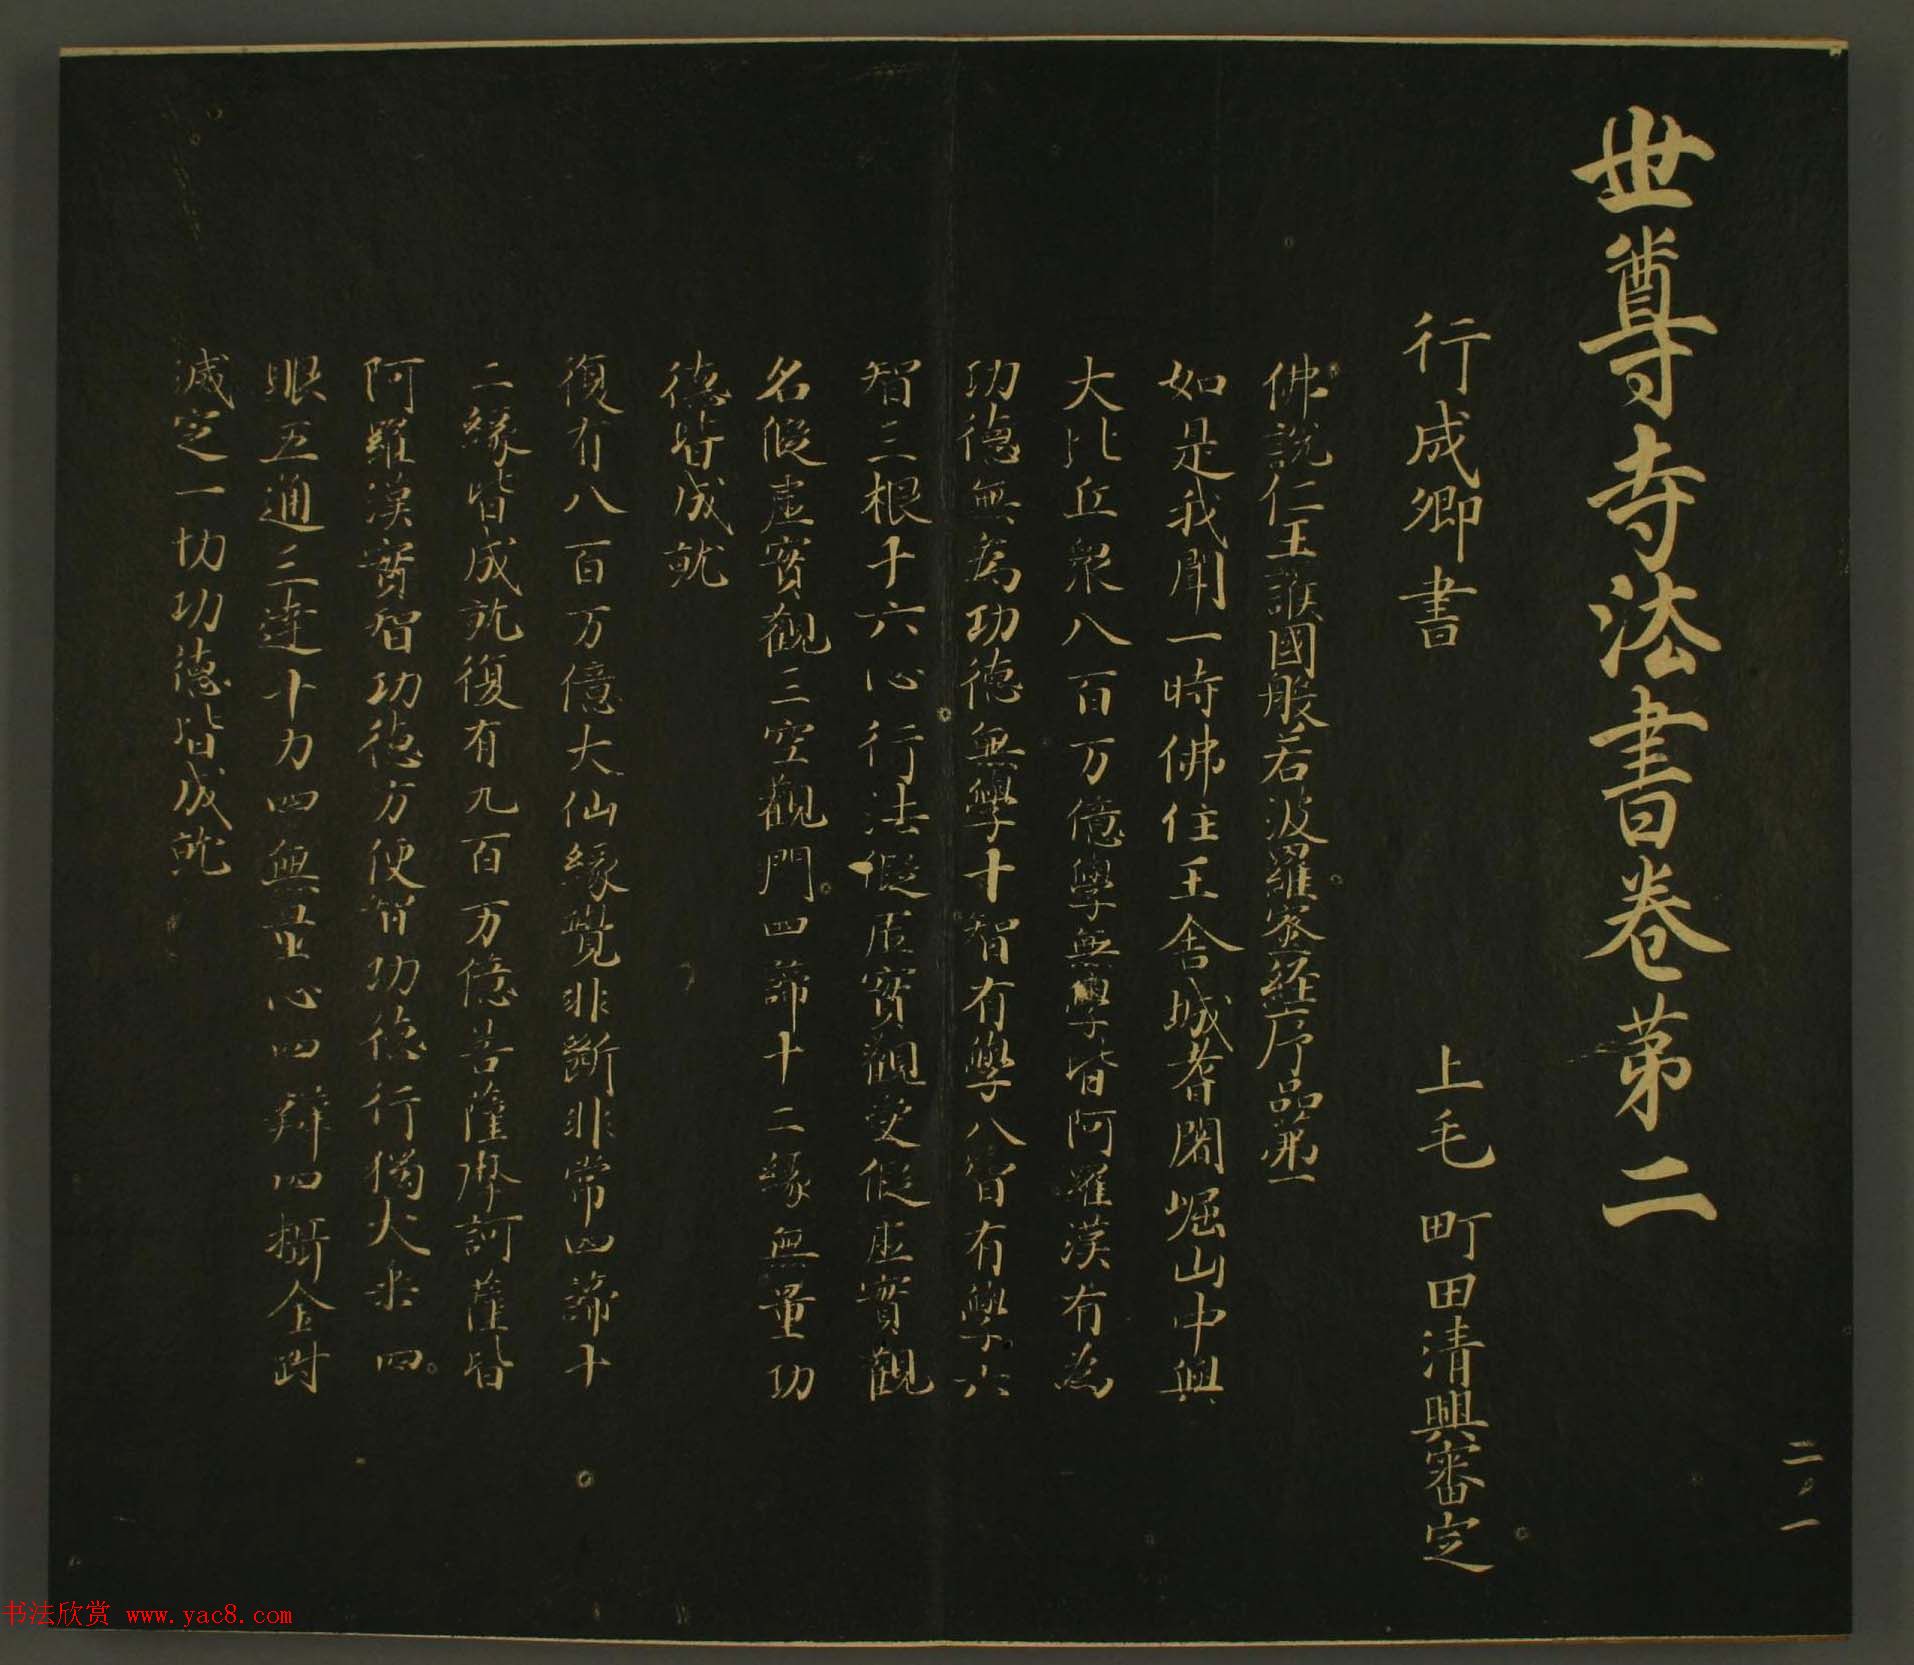 世尊寺法書卷第二
行成卿書 上毛 町田清興審定
佛說仁王護國般若波羅蜜經序品第一
如是我聞一時佛住王舍城耆闍崛山中與
大比丘眾八百万億學無學皆阿羅漢有為
功德無為功德無學十智有學八智有學六
智三根十六心行法假虛實觀受假虛實觀
名假虛實觀三空觀門四諦十二緣無量功
德皆成就
復有八百万億大仙緣覺非斷非常四諦十
二緣皆成就復有九百万億菩薩摩訶薩皆
阿羅漢實智功德方便智功德行獨大乘四
眼五通三達十力四無量心四辯四攝金剛
滅定一切功德皆成就
二·一
书法欣赏 www.yac8.com